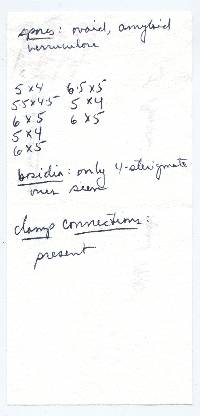 spores: ovoid, amyloid
verruculose
5 x 4    6.5 x 5
5.5 x 4.5    5 x 4
6 x 5    6 x 5
5 x 4
6 x 5
basidia: only 4-sterigmate
ones seen
clamp connections:
present